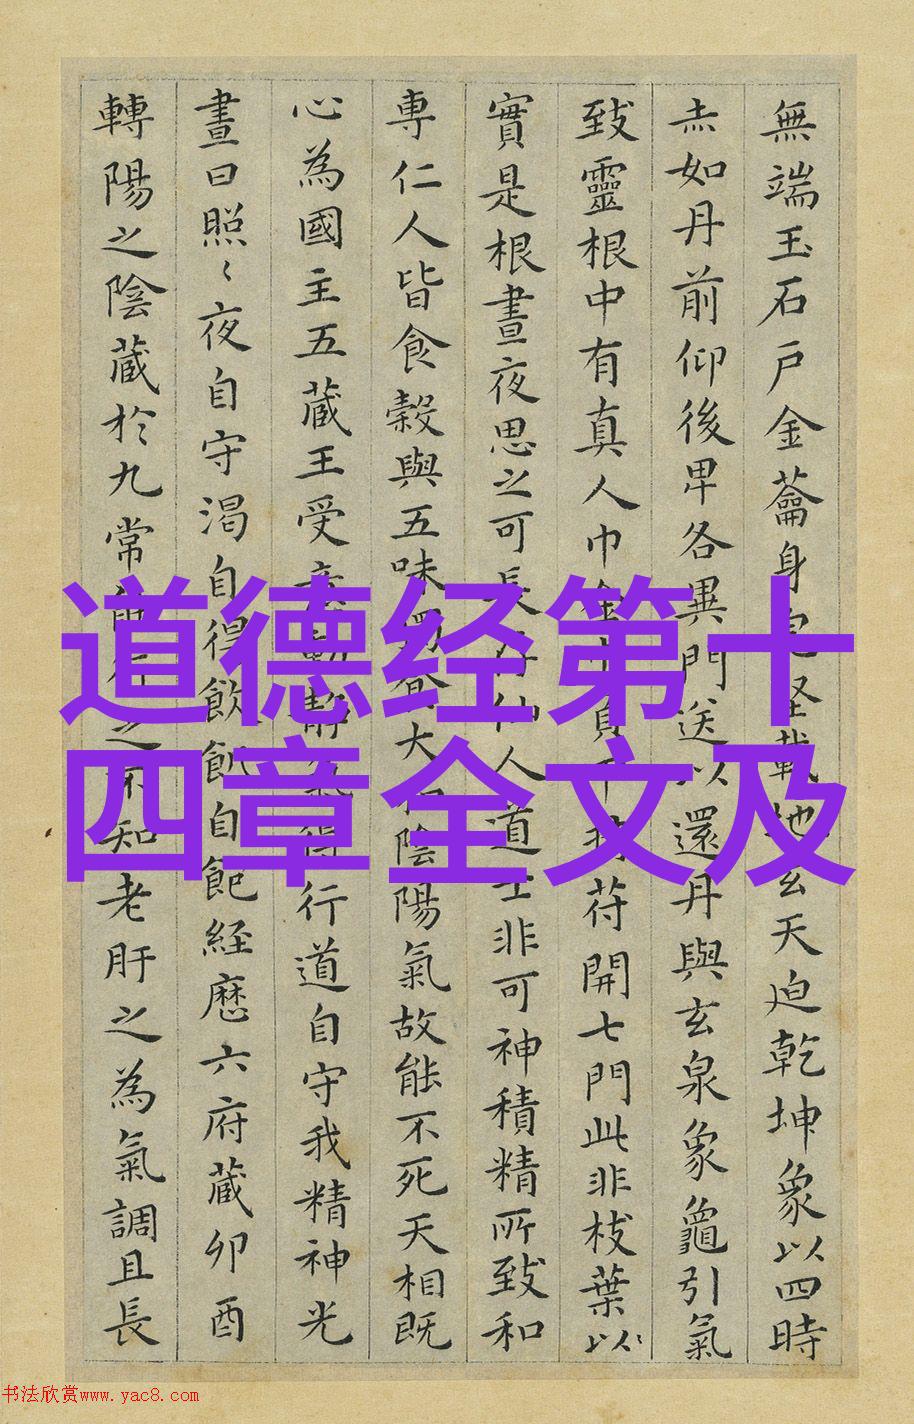 無端玉石戶金蘥身
天迫乾坤象以四時
赤如丹前仰後卑各異門送以還丹與玄泉象龜引氣
致靈根中有真人巾
符開七門此非枝葉以〻
實是根晝夜思之可長
仙人道士非可神積精所致和
專仁人皆食穀與五味
大
陰陽氣故能不死天相既
心為國主五藏王受
行道自守我精神光
晝日照〻夜自守渴自得飲飢自飽経歷六府藏卯酉
轉陽之陰藏於九常
之不知老肝之為氣調且長
道德经第十
四章全文及
书法欣赏www.yac8.com